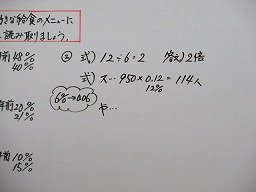 きな給食のメニューに
読み取りましょう。
前 48%
40%
② 式) 12÷6=2 答え) 2倍
式) ス… 950×0.12=114人
12%
6%→0.06
や…
年前 20%
21%
前 10%
15%